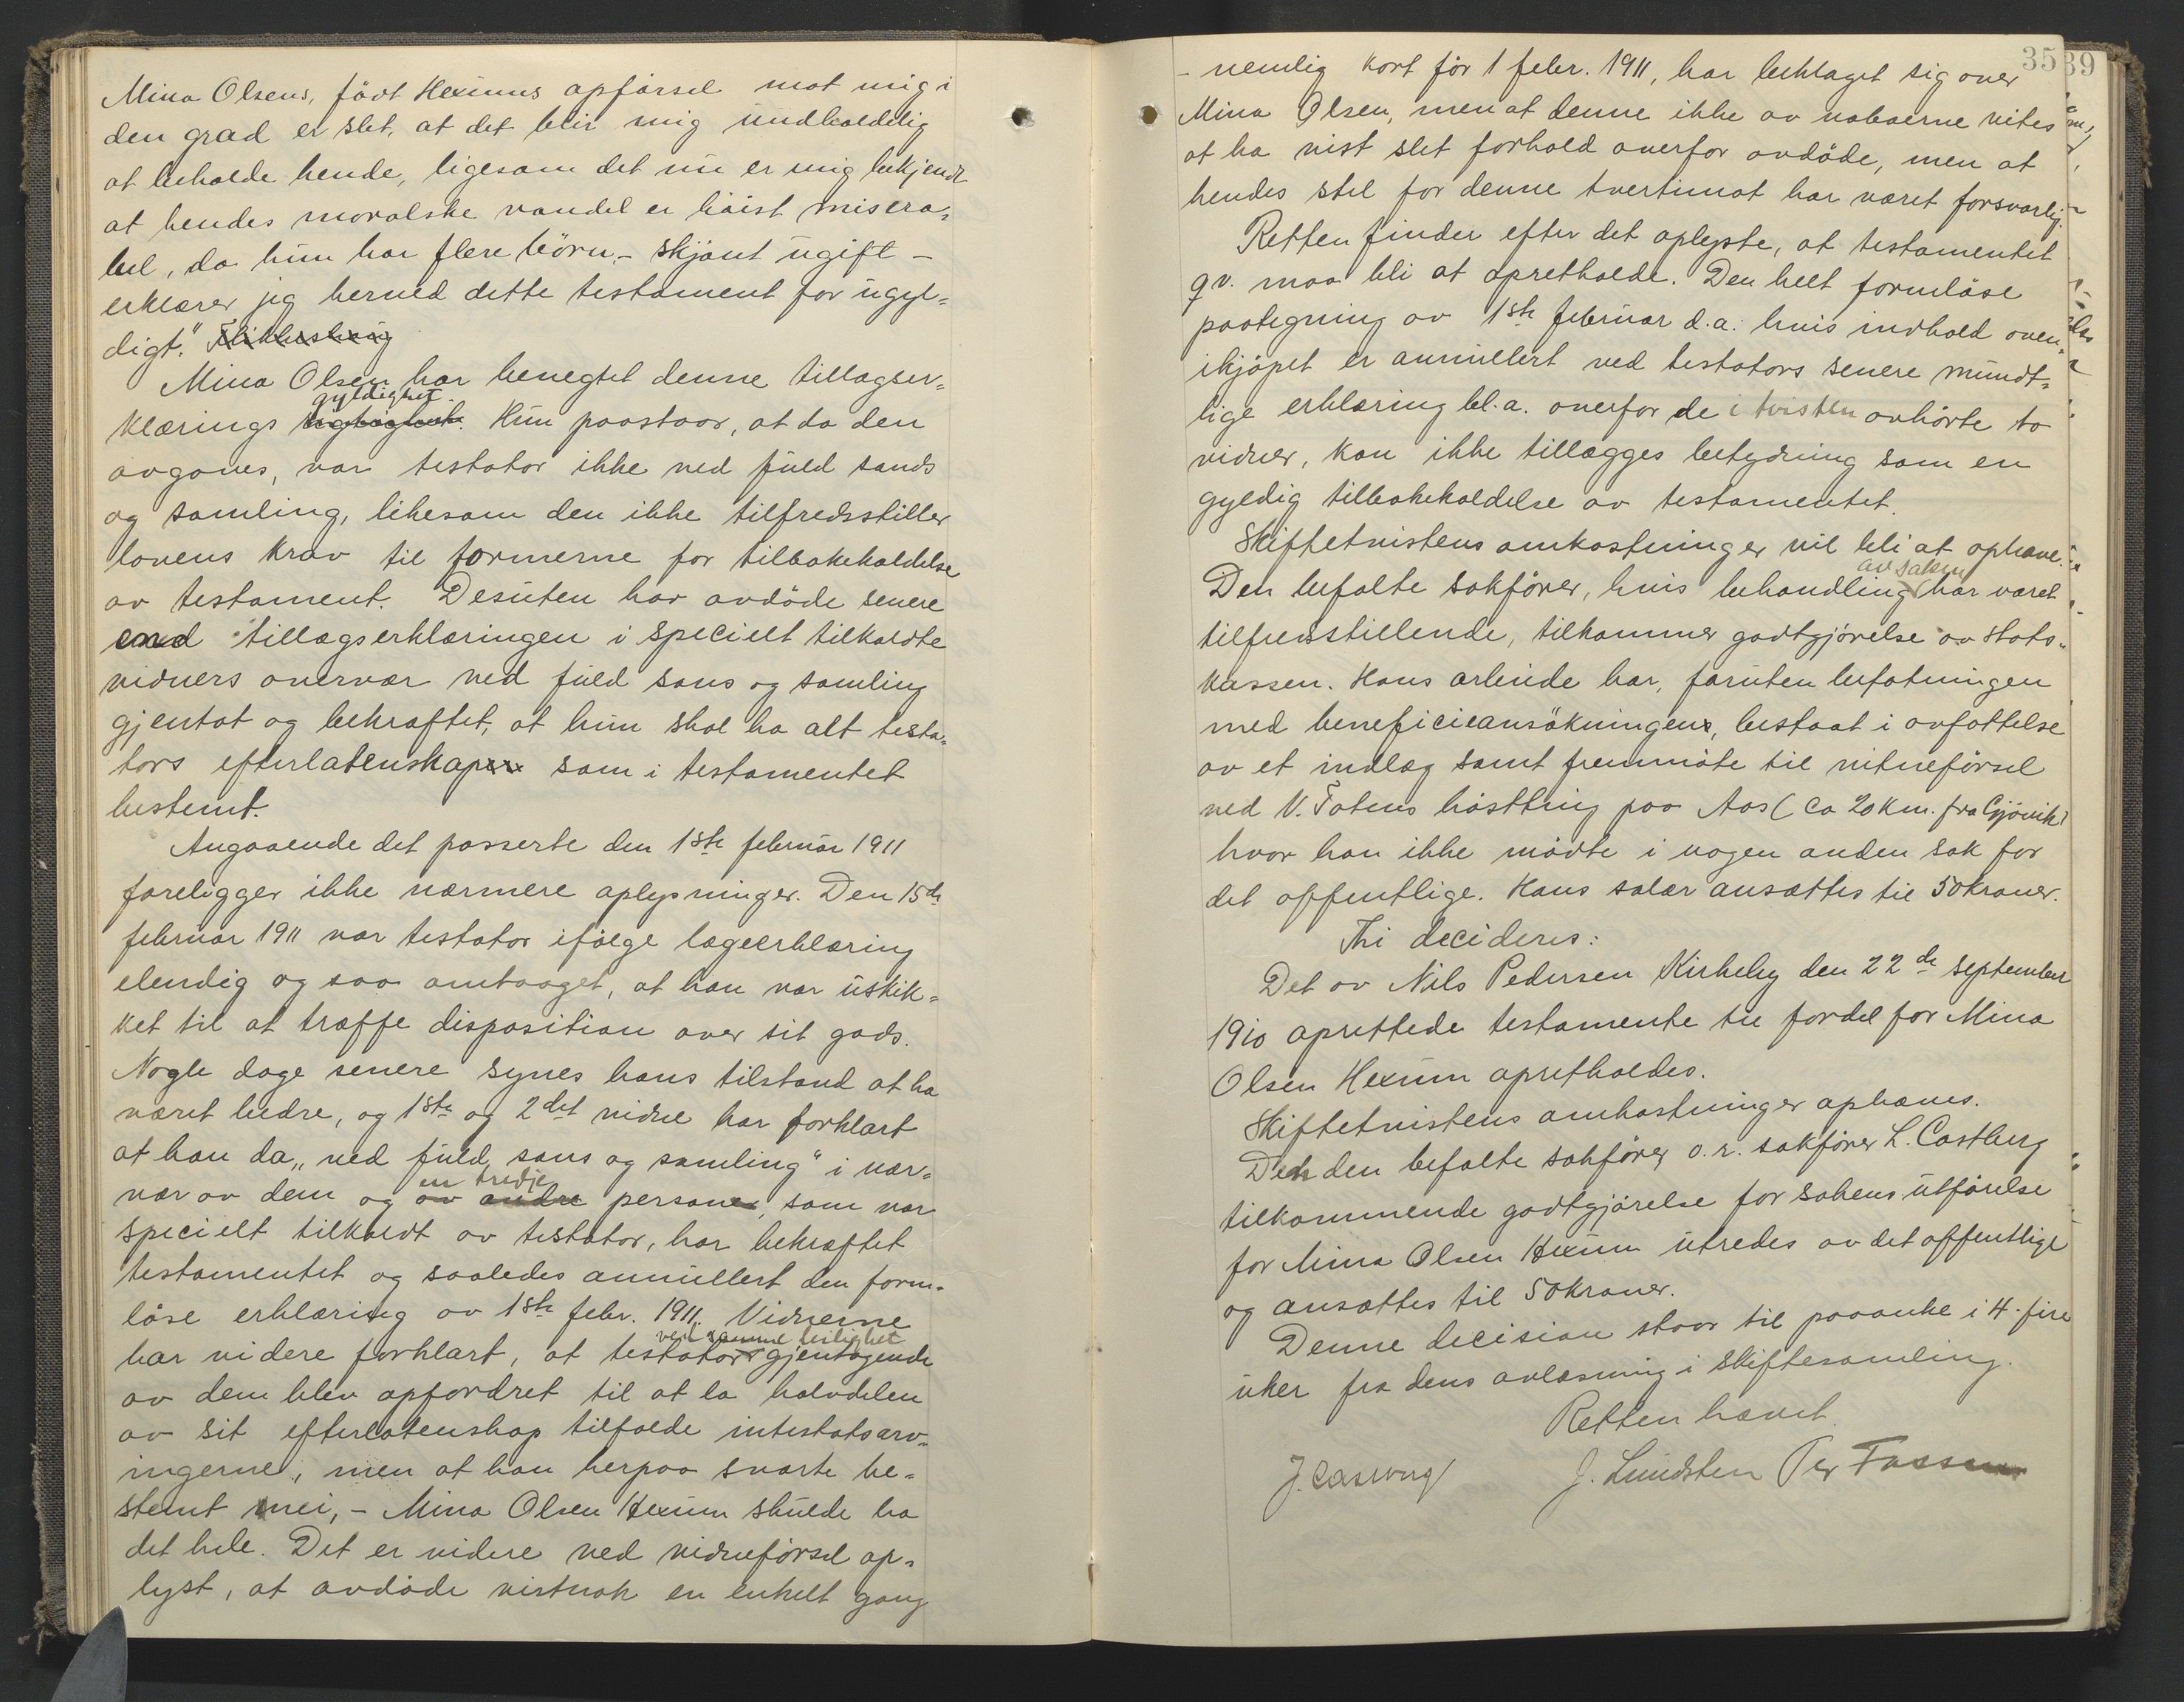 Mina Olsens, född Hexums opførsel mot mig i
den grad er slet, at det blir mig uudholdelig
at beholde hende, ligesom det nu er mig bekjendt
at hendes moralske vandel er høist misera-
bel, da hun har flere börn - skjønt ugift -
erklærer jeg herved dette testament for ugyl-
digt."
Mina Olsen har benegtet denne tillægser-
gyldighet.
klærings rigtighet. Hun paastaar, at da den
avgaves, var testator ikke ved fuld sands
og samling, likesom den ikke tilfredsstiller
lovens krav til formerne for tilbakekaldelse
av testament. Desuten har avdöde senere
end tillægserklæringen i specielt tilkaldte
vidners overvær ved fuld sans og samling
gjentat og bekræftet, at hun skal ha alt testa-
tors efterlatenskaper som i testamentet
bestemt.
Angaaende det passerte den 1ste februar 1911
foreligger ikke nærmere oplysninger. Den 15de
februar 1911 var testator ifølge lægeerklæring
elendig og saa omtaaget, at han var uskik-
ket til at træffe disposition over sit gods.
Nogle dage senere synes hans tilstand at ha
været bedre, og 1ste og 2det vidne har forklart
at han da "ved fuld sans og samling" i nær-
en tredje
vær av dem og av andre personer, som var
specielt tilkaldt av testator, har bekræftet
testamentet og saaledes annullert den form-
löse erklæring av 1ste febr. 1911. Vidnerne
ved samme leilighet
har videre forklart, at testator gjentagende
av dem blev opfordret til at la halvdelen
av sit efterlatenskap tilfalde intestatsarv-
ingerne, men at han herpaa svarte be-
stemt nei, - Mina Olsen Hexum skulde ha
det hele. Det er videre ved vidneförsel op-
lyst, at avdöde vistnok en enkelt gang
35 39
- nemlig kort för 1 febr. 1911, har beklaget sig over
Mina Olsen, men at denne ikke av naboerne vites
at ha vist slet forhold overfor avdöde, men at
hendes stel for denne tvertimot har været forsvarlig.
Retten finder efter det oplyste, at testamentet
qv. maa bli at opretholde. Den helt formlöse
paategning av 1ste februar d.a. hvis indhold oven-
ikjöpet er annullert ved testators senere mundt-
lige erklæring bl.a. overfor de i tvisten avhörte to
vidner, kan ikke tillægges betydning som en
gyldig tilbakekaldelse av testamentet.
Skiftetvistens omkostninger vil bli at ophæve.
av saken
Den befalte sakförer, hvis behandling har været
tilfredsstillende, tilkommer godtgjörelse av stats-
kassen. Hans arbeide har, foruten befatningen
med beneficieansökningen, bestaat i avfattelse
av et indlæg samt fremmöte til vitneförsel
ved V. Totens höstting paa Aas (ca 20 km. fra Gjövik)
hvor han ikke mödte i nogen anden sak for
det offentlige. Hans salær ansættes til 50 kroner.
Thi decideres:
Det av Nils Pedersen Kirkeby den 22de september
1910 oprettede testamente til fordel for Mina
Olsen Hexum opretholdes.
Skiftetvistens omkostninger ophæves.
Den den befalte sakförer o.r. sakförer L. Castberg
tilkommende godtgjörelse for sakens utförelse
for Mina Olsen Hexum utredes av det offentlige
og ansættes til 50 kroner.
Denne decision staar til paaanke i 4 - fire
uker fra dens avlæsning i skiftesamling.
Retten hævet.
J. Castberg J. Lundsten Per Fossen